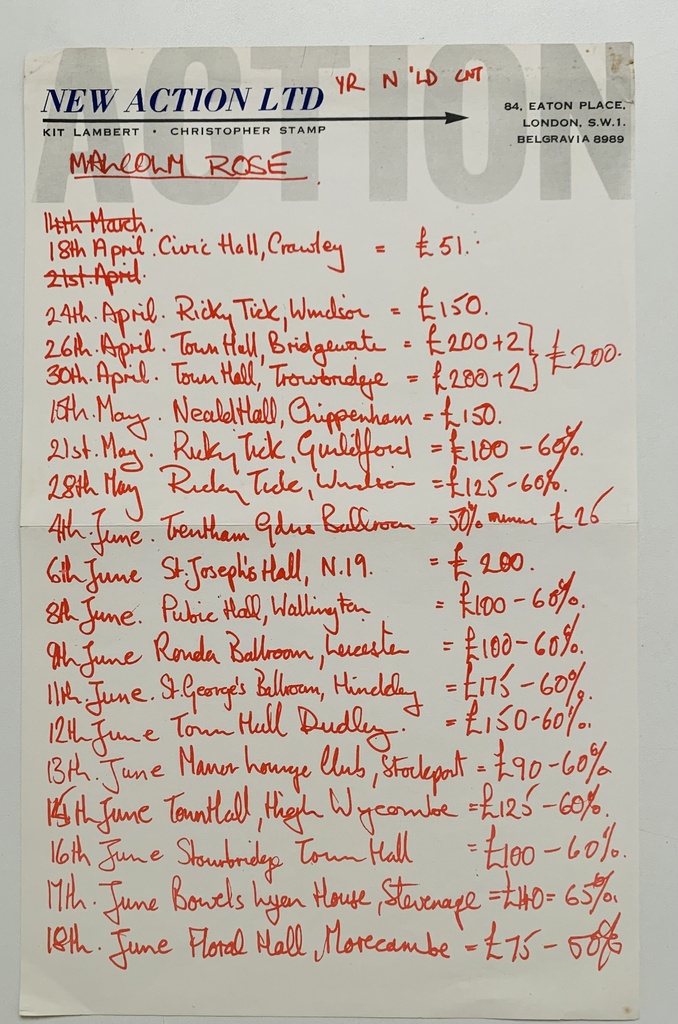 ACTION
YR N 'LD CNT
NEW ACTION LTD
KIT LAMBERT • CHRISTOPHER STAMP
84, EATON PLACE,
LONDON, S.W.1.
BELGRAVIA 8989
MALCOLM ROSE
14th March.
18th April. Civic Hall, Crawley = £51.
21st April.
24th. April. Ricky Tick, Windsor = £150.
26th. April. Town Hall, Bridgewate = £200+2
30th April. Town Hall, Trowbridge = £200+2 } £200.
15th. May. Neald Hall, Chippenham = £150.
21st. May. Ricky Tick, Guildford = £100 - 60%.
28th May Ricky Tick, Windsor = £125-60%.
4th. June. Trentham Gdns Ballroom = 50% minus £25
6th June St. Joseph's Hall, N.19. = £200.
8th June. Public Hall, Wallington = £100-60%.
9th June Ronda Ballroom, Leicester = £100-60%.
11th June. St. George's Ballroom, Hinckley = £175-60%.
12th June Town Hall Dudley. = £150-60%.
13th. June Manor Lounge Club, Stockport = £90-60%
15th June Town Hall, High Wycombe = £125-60%.
16th June Stourbridge Town Hall = £100-60%.
17th. June Bowels Lyen House, Stevenage = £140= 65%.
18th. June Floral Hall, Morecambe = £75 - 50%